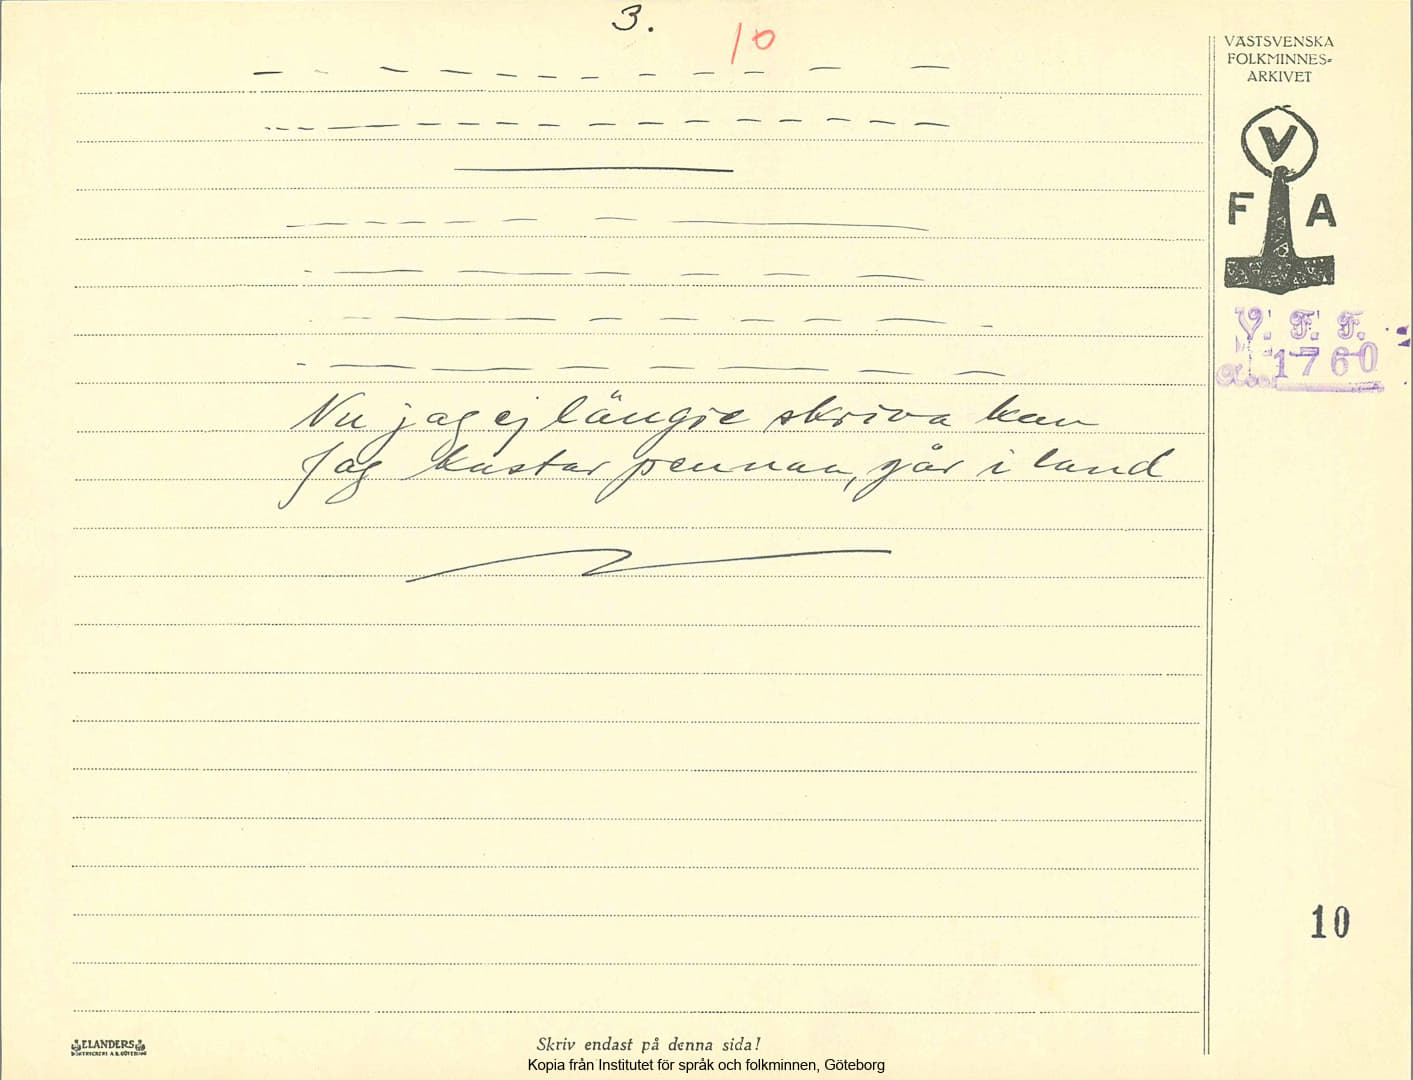 3.
10
VÄSTSVENSKA
FOLKMINNES=
ARKIVET
V
F A
V. F. F.
1760
Nu jag ej längre skriva kan
Jag kastar pennan, går i land
10
ELANDERS
BOKTRYCKERI A.B. GÖTEBORG
Skriv endast på denna sida!
Kopia från Institutet för språk och folkminnen, Göteborg